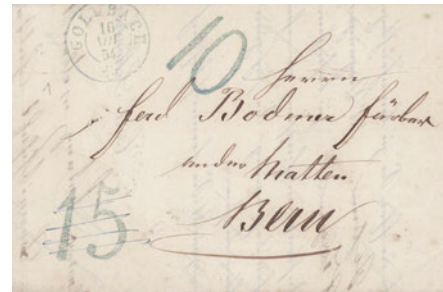 GOLDBACH
16
54
10
Herrn
ferd Bodmer färber
an der Matten
Bern
15